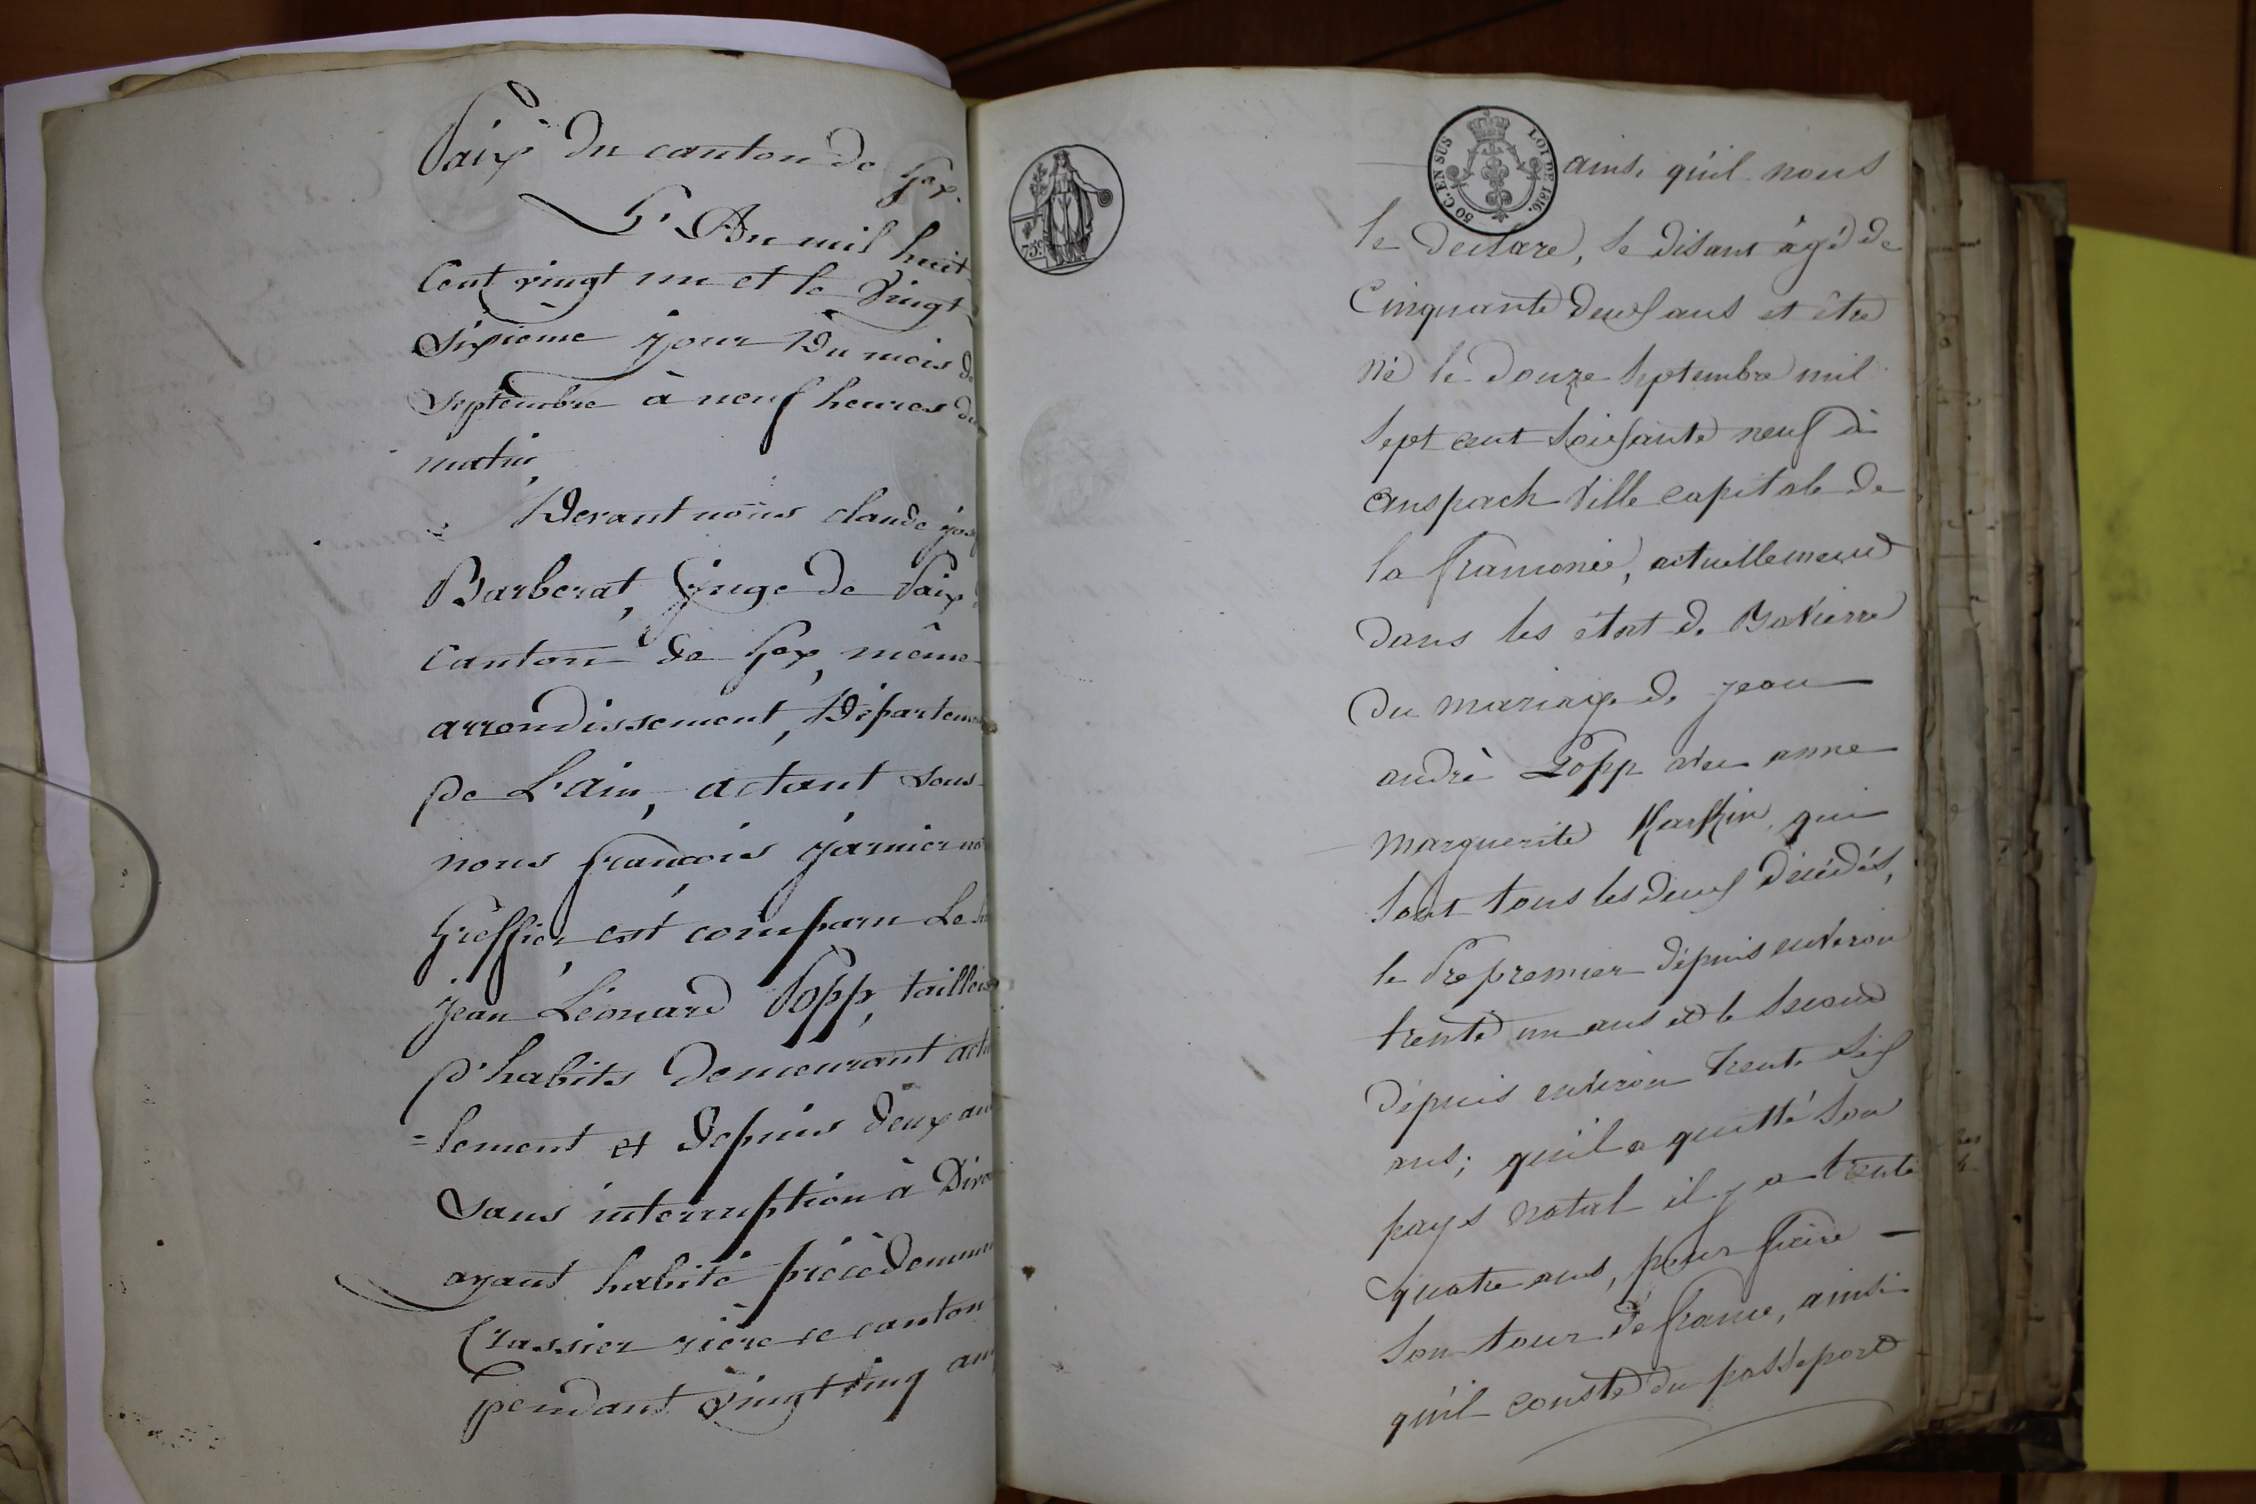 Paix du canton de Gex.
L'An mil huit
Cent vingt un et le vingt
sixième jour du mois de
septembre à neuf heures du
matin,
Devant nous claude jos
Barberat, juge de Paix
canton de Gex, même
arrondissement, Départem
De L'ain, actant sous
nous françois janier
Greffier, est comparu Le
Jean Léonard Popp, tailleur
D'habits demeurant actu
=lement et depuis deux an
sans interruption à Divo
ayant habité précédemmen
Crassier rière ce canton
pendant vingt cinq an
75c
50 C. EN SUS
LOI DE 1816.
ainsi qu'il nous
le declare, se disant âgé de
Cinquante deux ans et être
né le douze septembre mil
sept cent soixante neuf à
anspach Ville capitale de
la franconie, actuellement
dans les état de Bavierre
du mariage de jean
andré Popp avec anne
marguerite qui
sont tous les deux décédés,
le Pre premier depuis environ
trente un ans et le second
depuis environ trente six
ans; qu'il a quitté son
pays natal il y a trente
quatre ans, pour faire
son tour de france, ainsi
qu'il conste du passeport